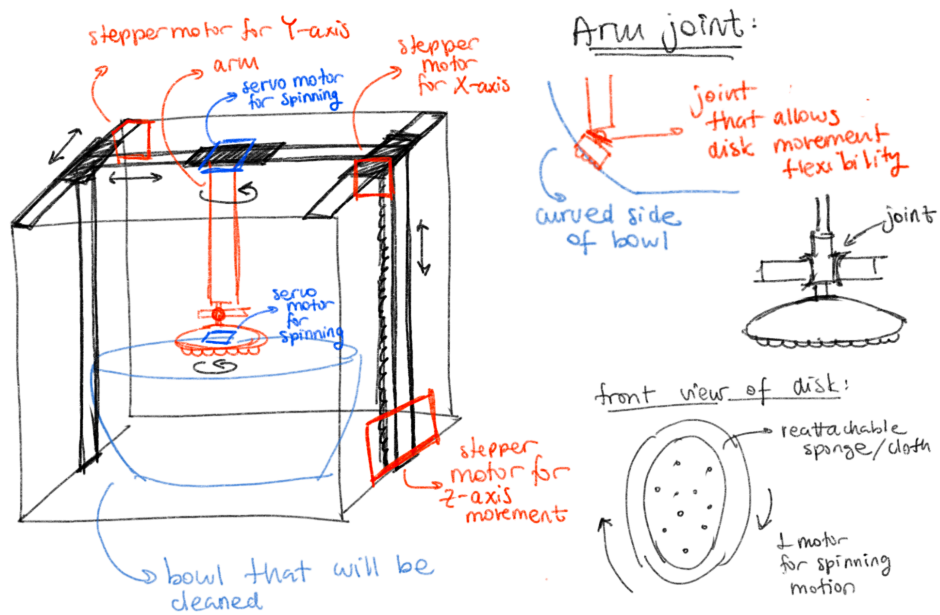 stepper motor for Y-axis
arm
servo motor
for spinning
stepper
motor
for X-axis
servo
motor
for
spinning
stepper
motor for
z-axis
movement
bowl that will be
cleaned
Arm joint:
joint
that allows
disk movement
flexibility
curved side
of bowl
joint
front view of disk:
reattachable
sponge/cloth
1 motor
for spinning
motion